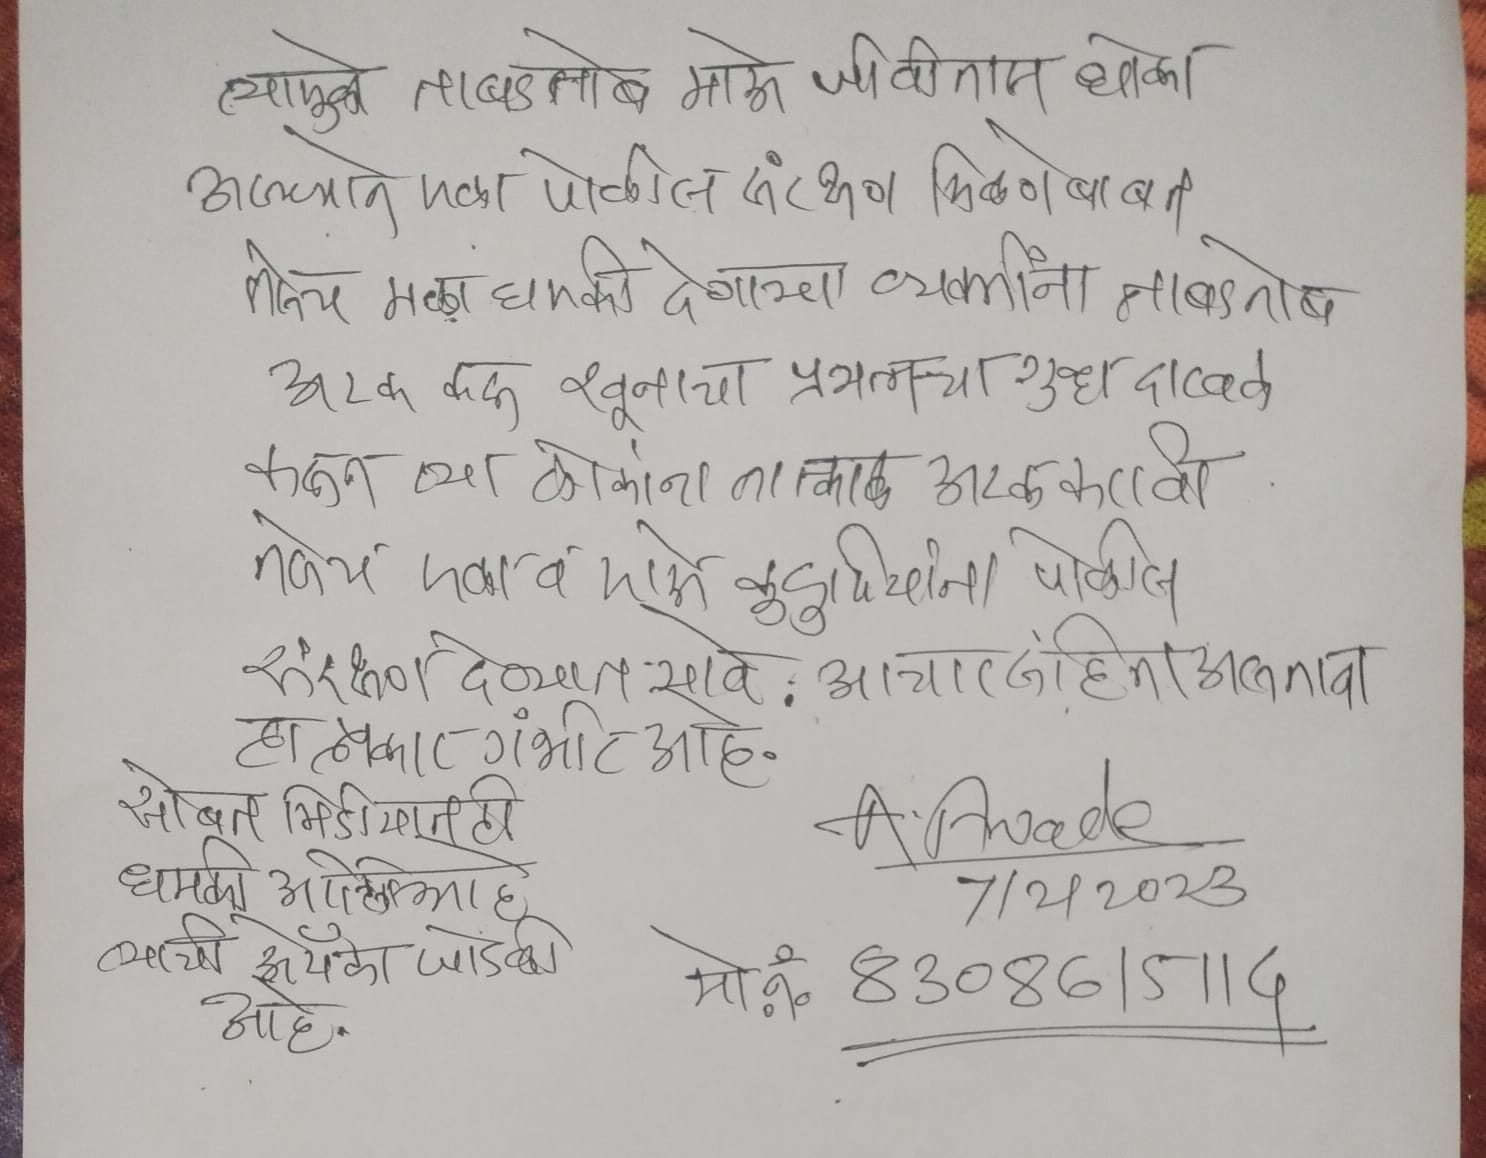 त्यामुळे ताबडतोब माझे जीवीतास धोका
असल्याने मला पोलीस संरक्षण मिळणेबाबत
तसेच मला धमकी देणाऱ्या व्यक्तींना ताबडतोब
अटक करू खूनाचा प्रयत्नाचा गुन्हा दाखल
करून त्या लोकांना तात्काळ अटक करावी
तसेच मला व माझे कुटुंबियांना पोलीस
संरक्षण देण्यात यावे. आचारसंहिता असतांना
हा प्रकार गंभीर आहे.
सोबत
धमकी आहे
त्याची झेरॉक्स जोडली
आहे.
A. Awade
7/2/2023
मो.नं. 8308615114